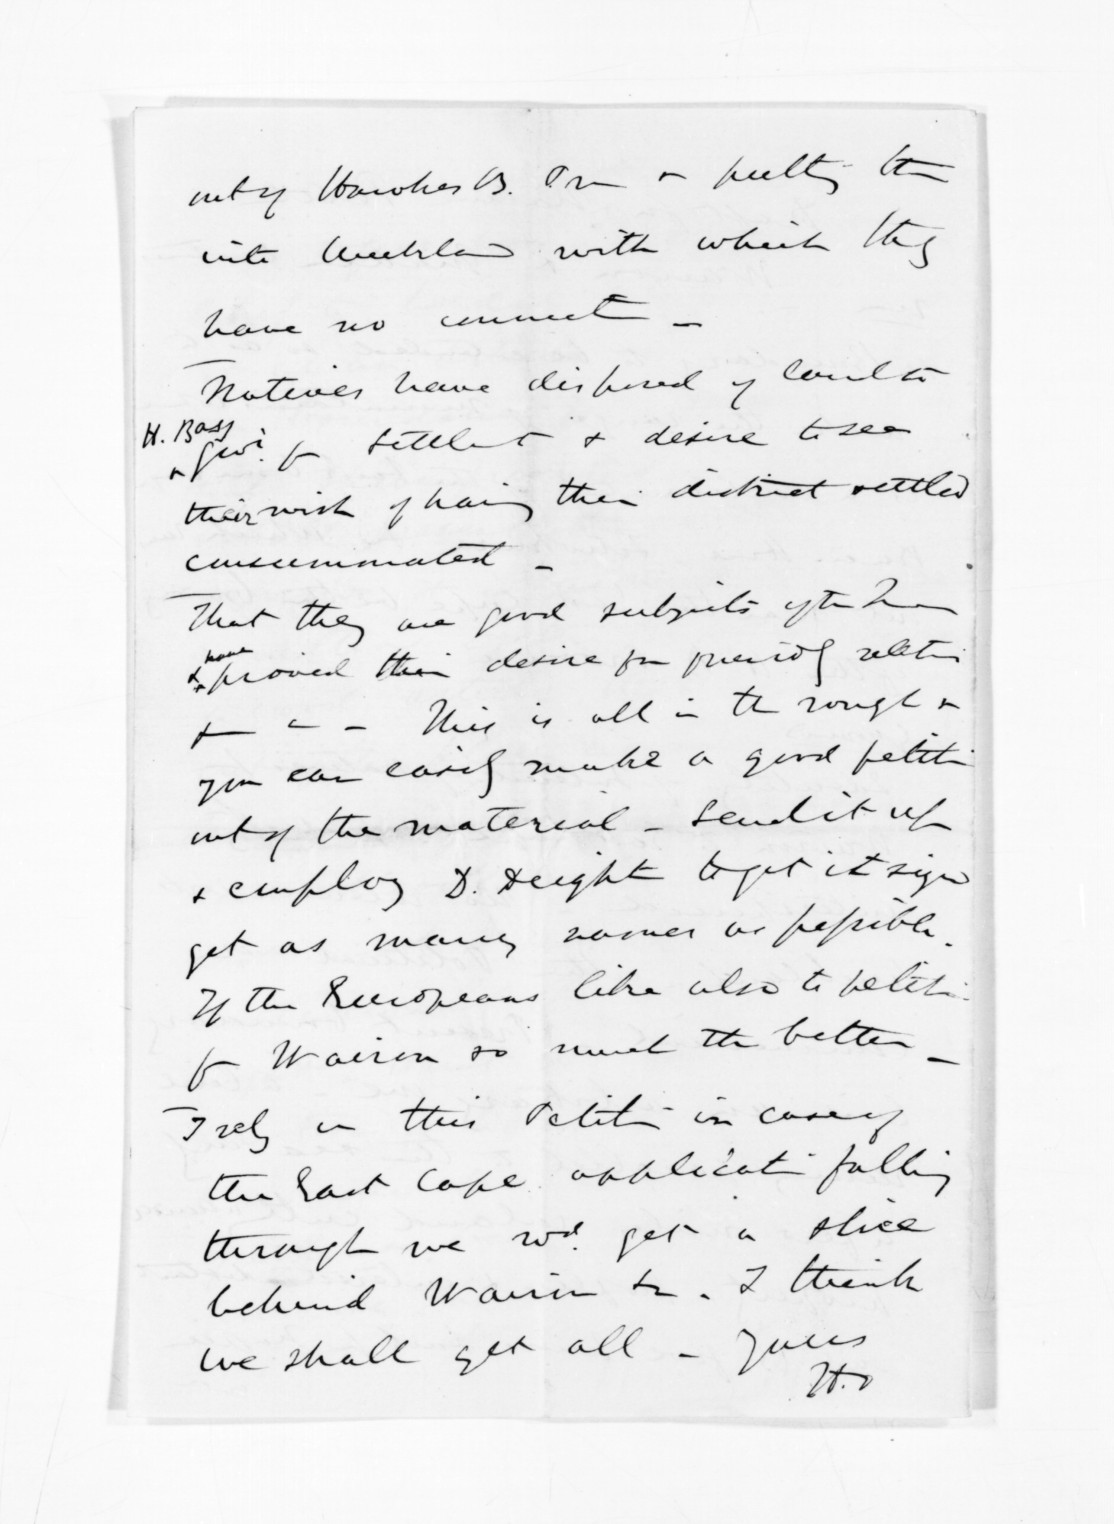 out of Hawkes B. Prov & putting them
into Auckland with which they
have no connect –
Natives have disposed of land to
H. Bay
Govt. for Settlemt & desire to see
their wish of having their district settled
consummated –
That they are good subjects of the Queen
have
& proved their desire for friendly relatn
& – – This is all in the rough &
you can easily make a good petitn
out of the material – send it up
& employ D. Deighton to get it signed
get as many names as possible.
If the Europeans like also to petitn
for Wairoa so much the better –
I rely on this Petitn in case of
the East Cape applicatn falling
through we wd. get a slice
behind Wairoa &c. I think
we shall get all – Yours